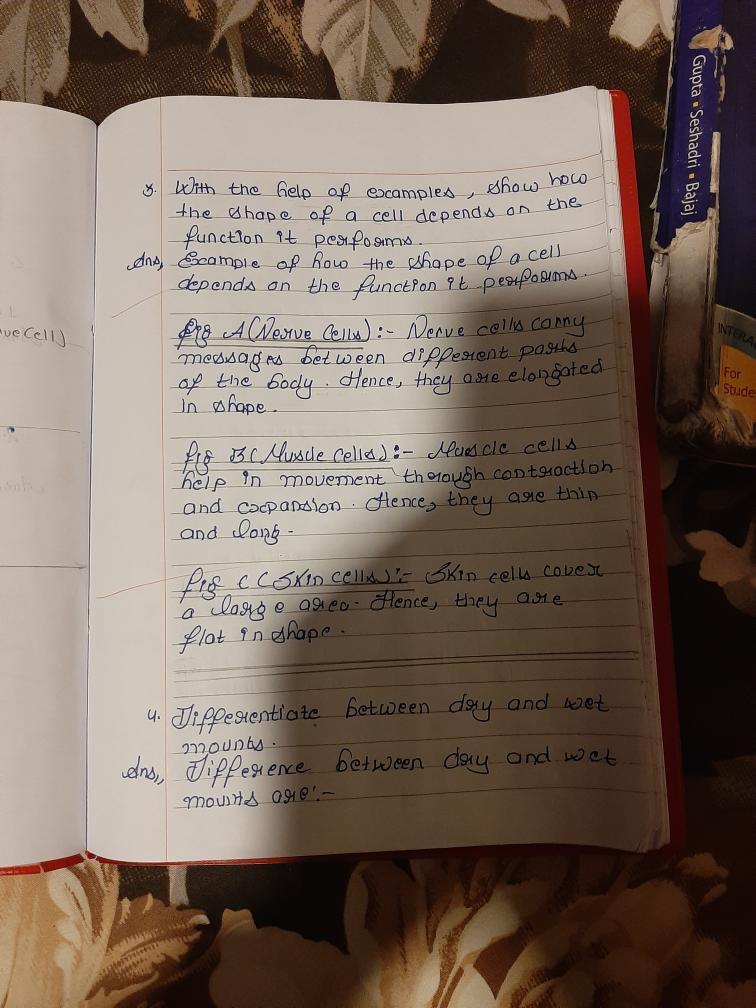 ve Cell)
3. With the help of examples, show how
the shape of a cell depends on the
function it performs.
Ans, Example of how the shape of a cell
depends on the function it performs.
fig A (Nerve Cells) :- Nerve cells carry
messages between different parts
of the body. Hence, they are elongated
in shape.
fig B (Muscle Cells) :- Muscle cells
help in movement through contraction
and expansion. Hence, they are thin
and long.
fig C (Skin cells) :- Skin cells cover
a large area. Hence, they are
flat in shape.
4. Differentiate between dry and wet
mounts.
Ans,, Difference between dry and wet
mounts are :-
Gupta ▪ Seshadri ▪ Bajaj
INTERA
For
Stude